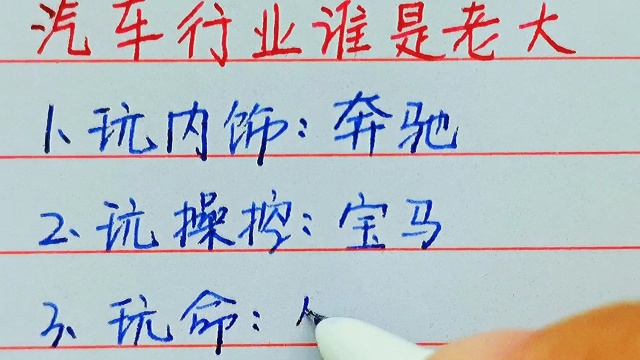 汽车行业谁是老大
1、玩内饰：奔驰
2、玩操控：宝马
3、玩命：